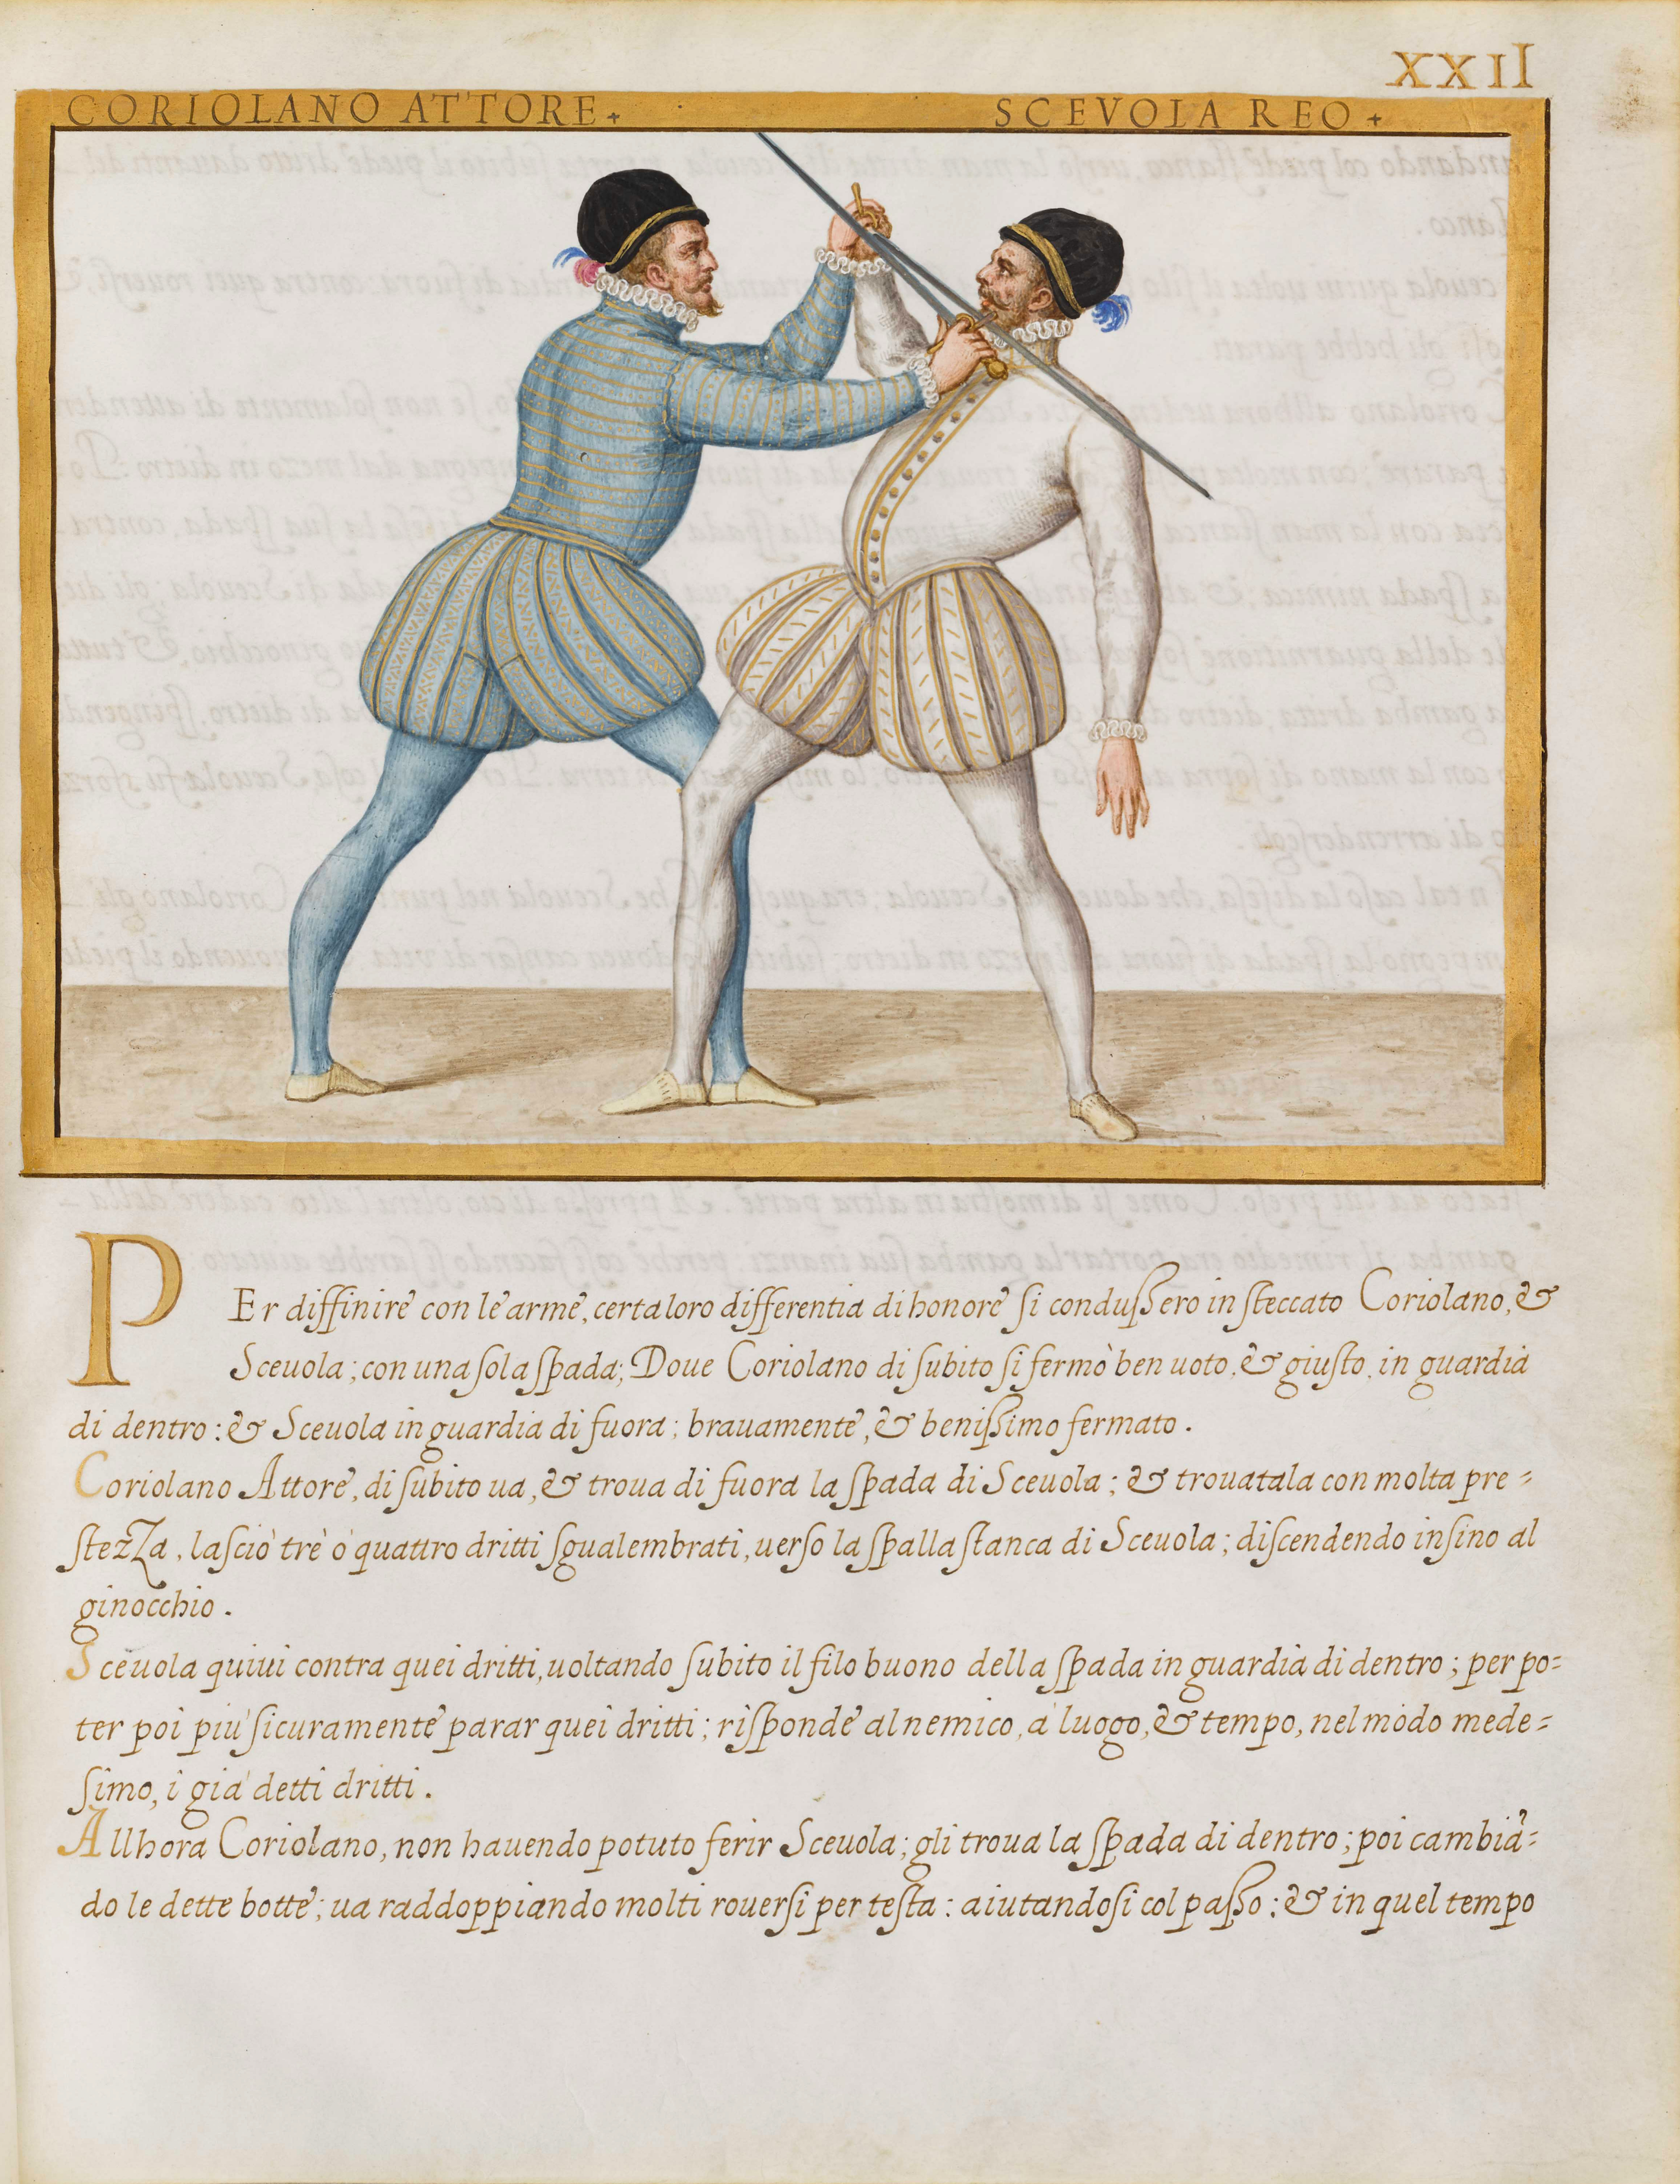 XXII
CORIOLANO ATTORE + SCEVOLA REO +
PEr diffinire con le arme, certa loro differentia di honore si condussero in steccato Coriolano, &
Sceuola; con una sola spada; Doue Coriolano di subito si fermò ben uoto, & giusto, in guardia
di dentro: & Sceuola in guardia di fuora; brauamente, & benissimo fermato.
Coriolano Attore, di subito ua, & troua di fuora la spada di Sceuola; & trouatala con molta pre=
stezza, lasciò trè ò quattro dritti sgualembrati, uerso la spalla stanca di Sceuola; discendendo insino al
ginocchio.
Sceuola quiui contra quei dritti, uoltando subito il filo buono della spada in guardia di dentro; per po=
ter poi più sicuramente parar quei dritti; risponde al nemico, à luogo, & tempo, nel modo mede=
simo, i già detti dritti.
Allhora Coriolano, non hauendo potuto ferir Sceuola; gli troua la spada di dentro; poi cambiã=
do le dette botte; ua raddoppiando molti rouersi per testa: aiutandosi col passo: & in quel tempo